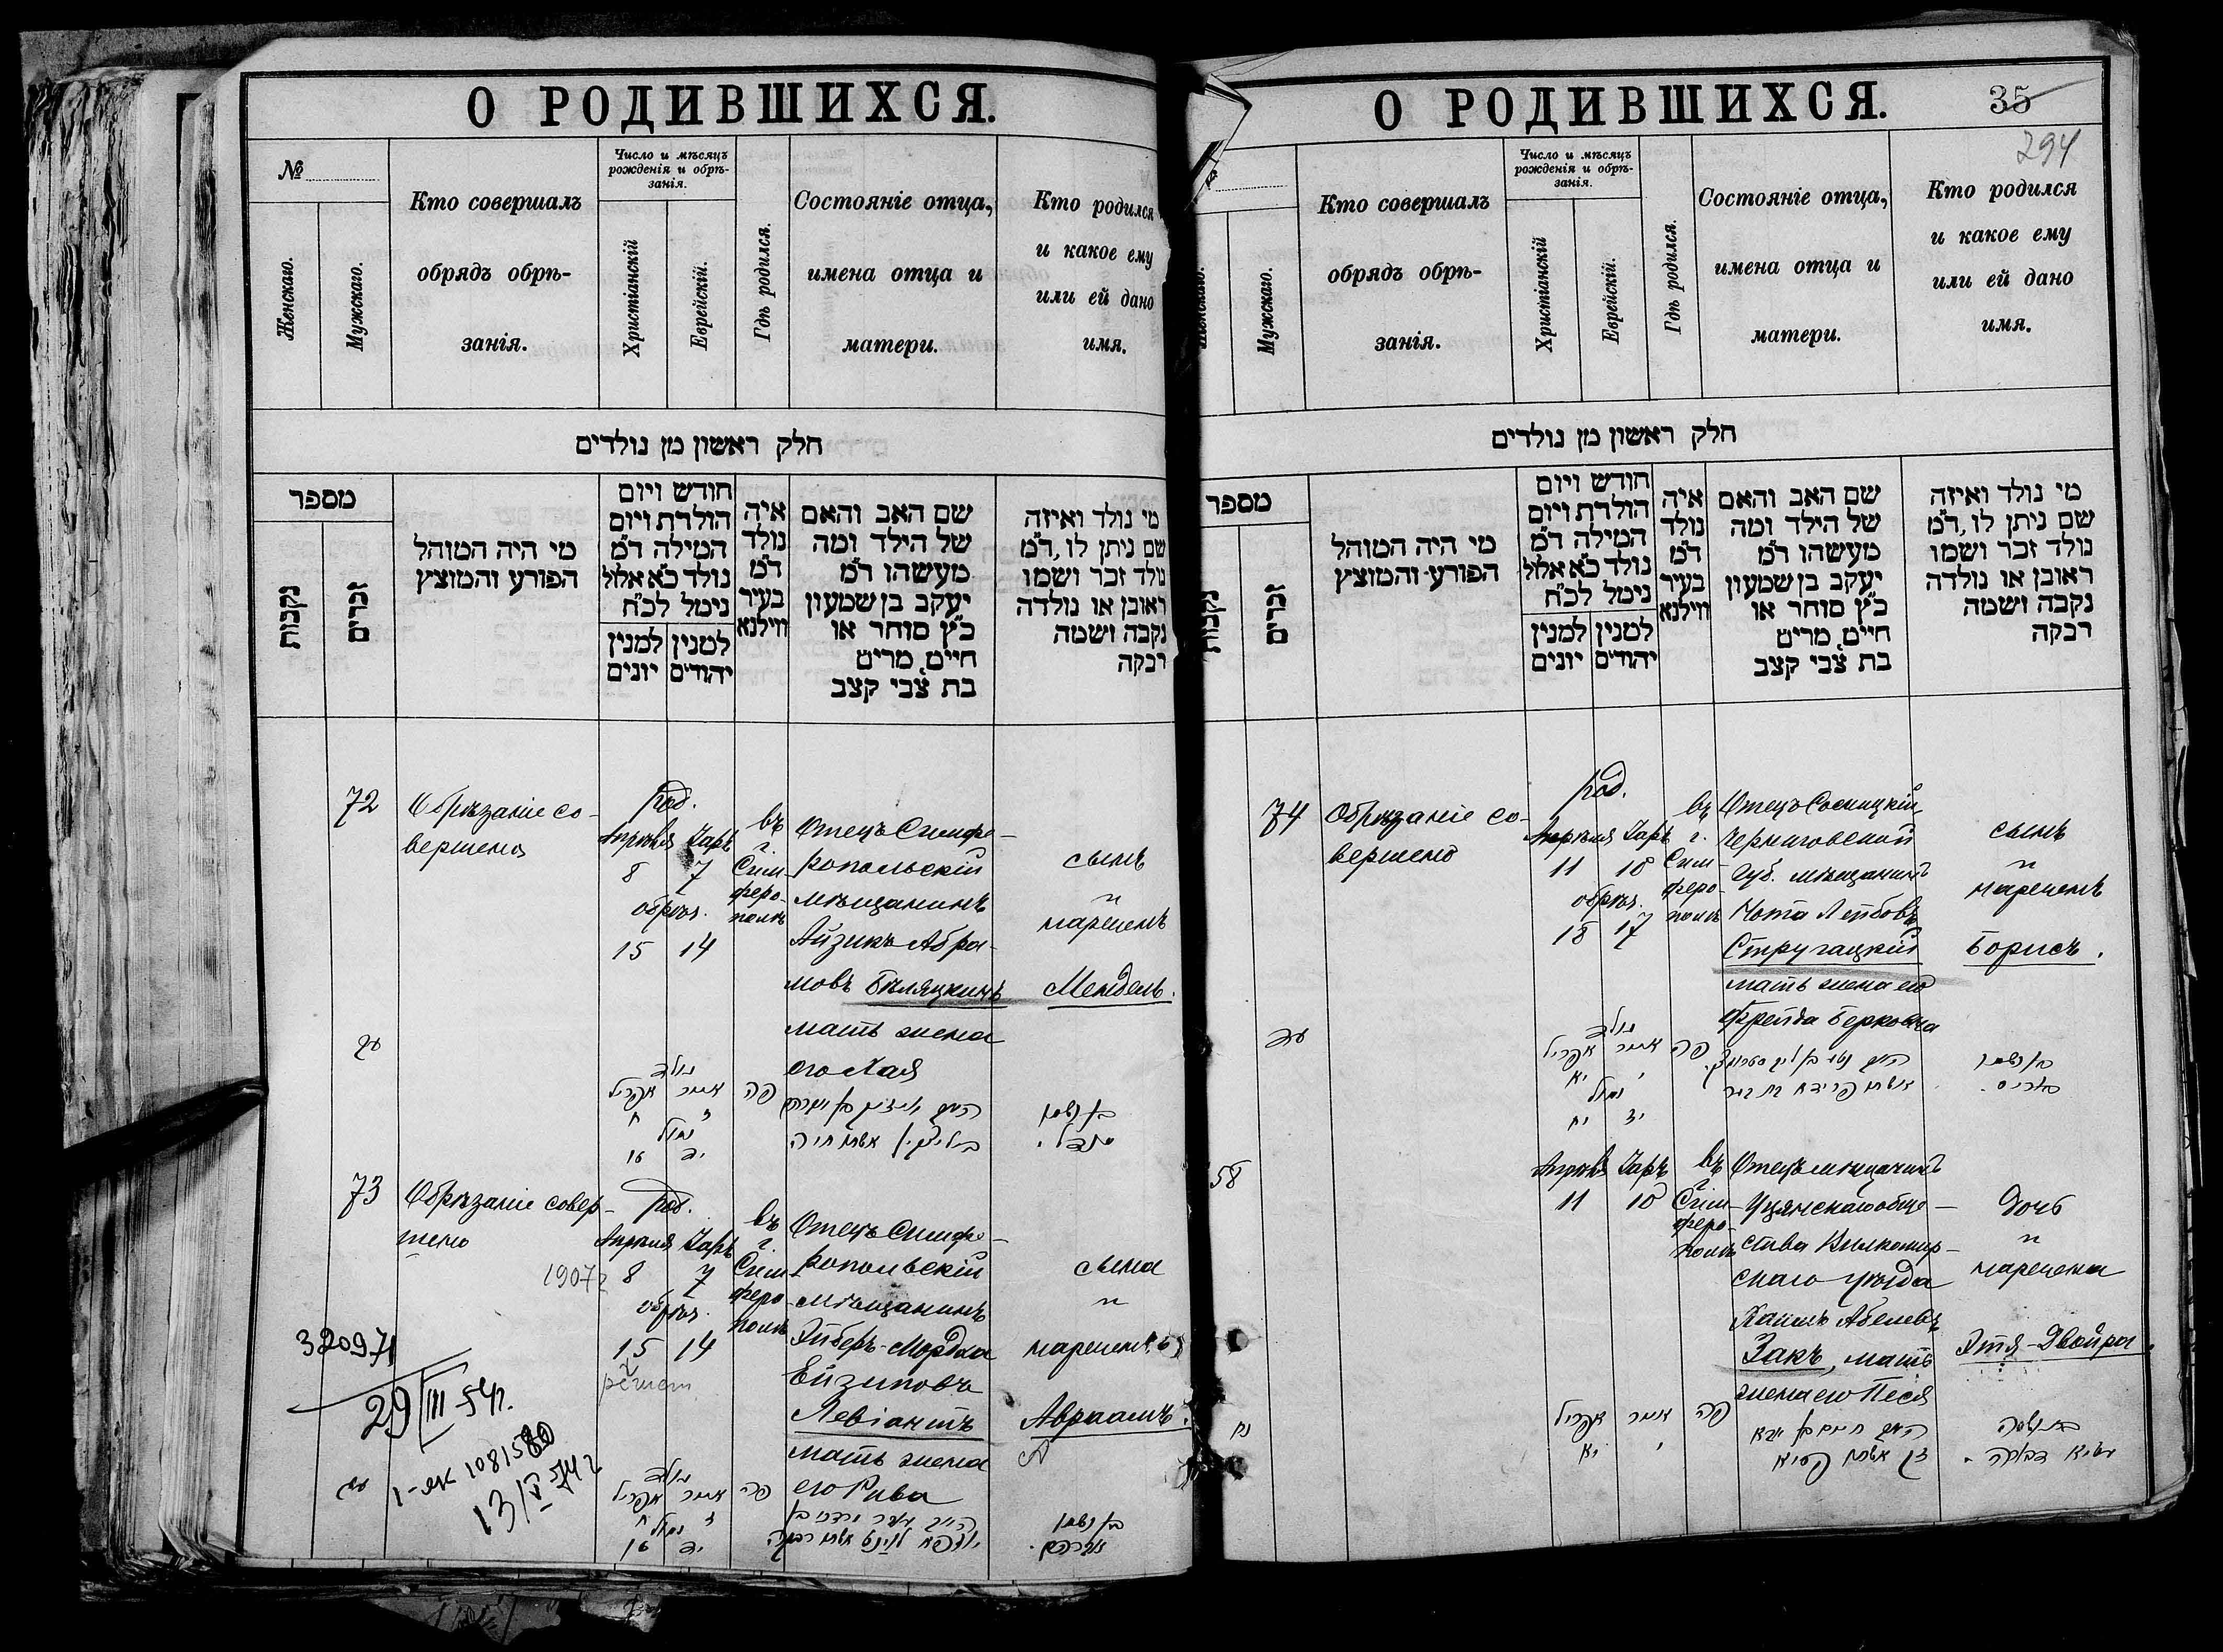 О РОДИВШИХСЯ.
№
Женскаго.
Мужскаго.
Кто совершалъ
обрядъ обрѣ-
занія.
Число и мѣсяцъ
рожденія и обрѣ-
занія.
Христіанскій
Еврейскій.
Гдѣ родился.
Состояніе отца,
имена отца и
матери.
Кто родился
и какое ему
или ей дано
имя.
חלק ראשון מן נולדים
מספר
נקבות
זכרים
מי היה המוהל
הפורע והמוצץ
חודש ויום
הולדת ויום
המילה ד״מ
נולד כ״א אלול
ניטל לכ״ח
למנין יהודים
למנין יונים
איה
נולד
ד״מ
בעיר
ווילנא
שם האב והאם
של הילד ומה
מעשהו ד״מ
יעקב בן שמעון
כ״ץ סוחר או
חיים, מרים
בת צבי קצב
מי נולד ואיזה
שם ניתן לו, ד״מ
נולד זכר ושמו
ראובן או נולדה
נקבה ושמה
רבקה
72
Обрѣзаніе со-
вершено
род.
Апрѣля Іаръ
8 7
обрѣз.
15 14
въ
г.
Сим-
феро-
полѣ
Отецъ Симфе-
ропольскій
мѣщанинъ
Айзикъ Абра-
мовъ Бѣляцкинъ
мать жена
его Хая
сынъ
и
нареченъ
Мендель.
עב
נולד
אייר אפריל
ז ח
נמול
יד טו
פה
73
Обрѣзаніе совер-
шено
род.
Апрѣля Іаръ
8 7
обрѣз.
15 14
въ
г.
Сим
феро-
полѣ
Отецъ Симфе-
ропольскій
мѣщанинъ
Эйберъ-Мордха
Ейзиковъ
Левіантъ
мать жена
его Рива
сына
и
нареченъ
Авраамъ.
1907 г
320971
29/III-54г.
1081580
13/V 54 г
נולד
אייר אפריל
ז ח
נמול
יד טו
פה
О РОДИВШИХСЯ.
35
294
Мужскаго.
Кто совершалъ
обрядъ обрѣ-
занія.
Число и мѣсяцъ
рожденія и обрѣ-
занія.
Христіанскій
Еврейскій.
Гдѣ родился.
Состояніе отца,
имена отца и
матери.
Кто родился
и какое ему
или ей дано
имя.
חלק ראשון מן נולדים
מספר
נקבות
זכרים
מי היה המוהל
הפורע והמוצץ
חודש ויום
הולדת ויום
המילה ד״מ
נולד כ״א אלול
ניטל לכ״ח
למנין יהודים
למנין יונים
איה
נולד
ד״מ
בעיר
ווילנא
שם האב והאם
של הילד ומה
מעשהו ד״מ
יעקב בן שמעון
כ״ץ סוחר או
חיים, מרים
בת צבי קצב
מי נולד ואיזה
שם ניתן לו, ד״מ
נולד זכר ושמו
ראובן או נולדה
נקבה ושמה
רבקה
74
Обрѣзаніе со-
вершено
род.
Апрѣля Іаръ
11 10
обрѣз.
18 17
въ
г.
Сим-
феро-
полѣ
Отецъ Сосницкій
Черниговской
Губ. мѣщанинъ
Нота Лейбовъ
Стругацкій
мать жена его
Фрейда Берковна
сынъ
и
нареченъ
Борисъ.
עד
נולד
אייר אפריל
י יא
נמול
יז יח
פה
58
Апрѣля Іаръ
11 10
въ
г.
Сим-
феро-
полѣ
Отецъ мѣщанинъ
Уцянскаго обще-
ства Вилкомир-
скаго уѣзда
Хаимъ Абелевъ
Закъ, мать
жена его Песя
дочь
и
наречена
Этя-Двойра.
נח
אייר אפריל
י יא
פה